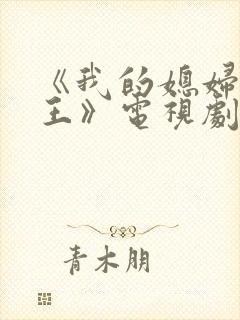 《我的媳婦
王》電視劇
青木朋